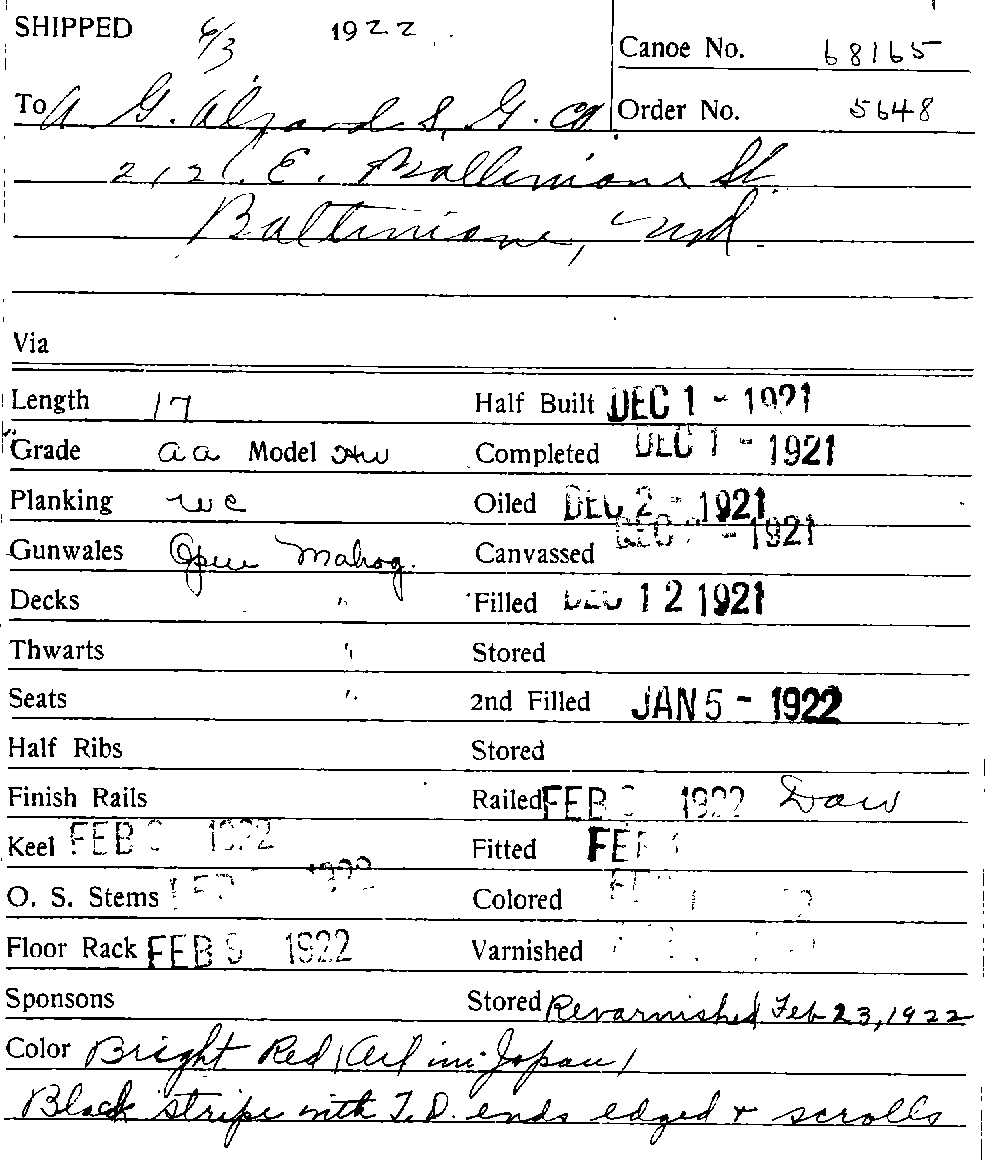 SHIPPED 6/3 1922
Canoe No. 68165
To A G. Alford S. G. Co
Order No. 5648
212 E. Baltimore St.
Baltimore, Md.
Via
Length 17 Half Built DEC 1 - 1921
Grade aa Model HW Completed DEC 1 - 1921
Planking WC Oiled DEC 2 - 1921
Gunwales Open Mahog. Canvassed DEC - 1921
Decks " Filled DEC 12 1921
Thwarts " Stored
Seats " 2nd Filled JAN 5 - 1922
Half Ribs Stored
Finish Rails Railed FEB 1922 Daw
Keel FEB 1922 Fitted FEB
O. S. Stems 1922 Colored
Floor Rack FEB 9 1922 Varnished
Sponsons Stored Revarnished Feb 23, 1922
Color Bright Red (Art in Japan)
Black stripe with T.D. ends edged & scrolls